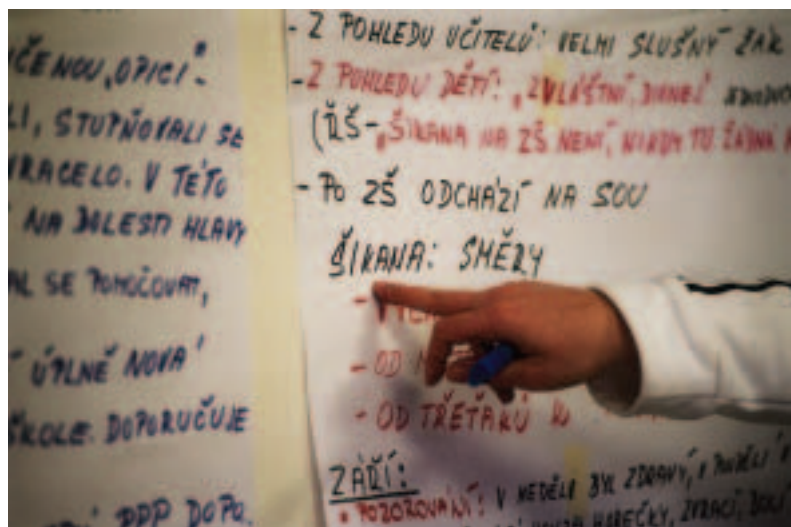 ČENOU „OPICÍ“-
LI, STUPŇOVALI SE
VRACELO. V TÉTO
NA BOLESTI HLAVY
AL SE POMOČOVAT,
ÚPLNĚ NOVÁ'
ŠKOLE. DOPORUČUJE
PPP DOPO.
- Z POHLEDU UČITELŮ: VELMI SLUŠNÝ ŽÁK
- Z POHLEDU DĚTÍ: „ZVLÁŠTNÍ, DIVNEJ“
(ŘŠ-„ŠIKANA NA ZŠ NENÍ, NIKDY TU ŽÁDNÁ
- PO ZŠ ODCHÁZÍ NA SOU
ŠIKANA: SMĚRY
-
- OD
- OD TŘEŤÁKŮ
ZÁŘÍ:
• POZOROVÁNÍ: V NEDĚLI BYL ZDRAVÝ, V PONDĚLÍ
ZVRACÍ, BOLÍ